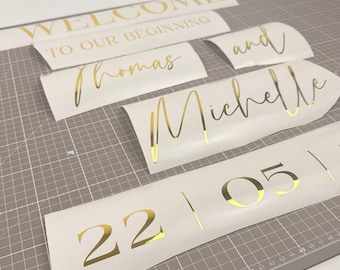 WELCOME
TO OUR BEGINNING
Thomas and
Michelle
22 | 05 |